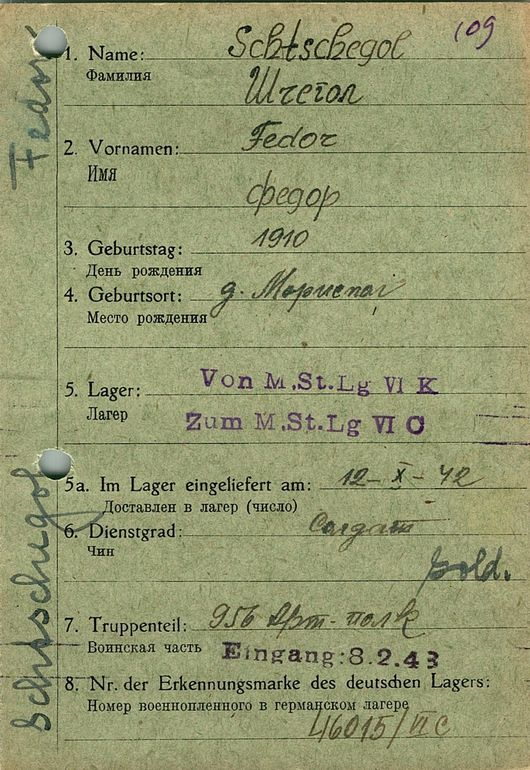 109
1. Name: Schtschegol
Фамилия
Щегол
2. Vornamen: Fedor
Имя
Федор
3. Geburtstag: 1910
День рождения
4. Geburtsort: д.
Место рождения
5. Lager: Von M.St.Lg VI K
Лагер Zum M.St.Lg VI C
5a. Im Lager eingeliefert am: 12-X-42
Доставлен в лагер (число)
6. Dienstgrad: Солдат
Чин
Sold.
7. Truppenteil: 956 Арт-полк
Воинская часть Eingang: 8.2.43
8. Nr. der Erkennungsmarke des deutschen Lagers:
Номер военнопленного в германском лагере
46015/VI C
Schtschegol Fedor